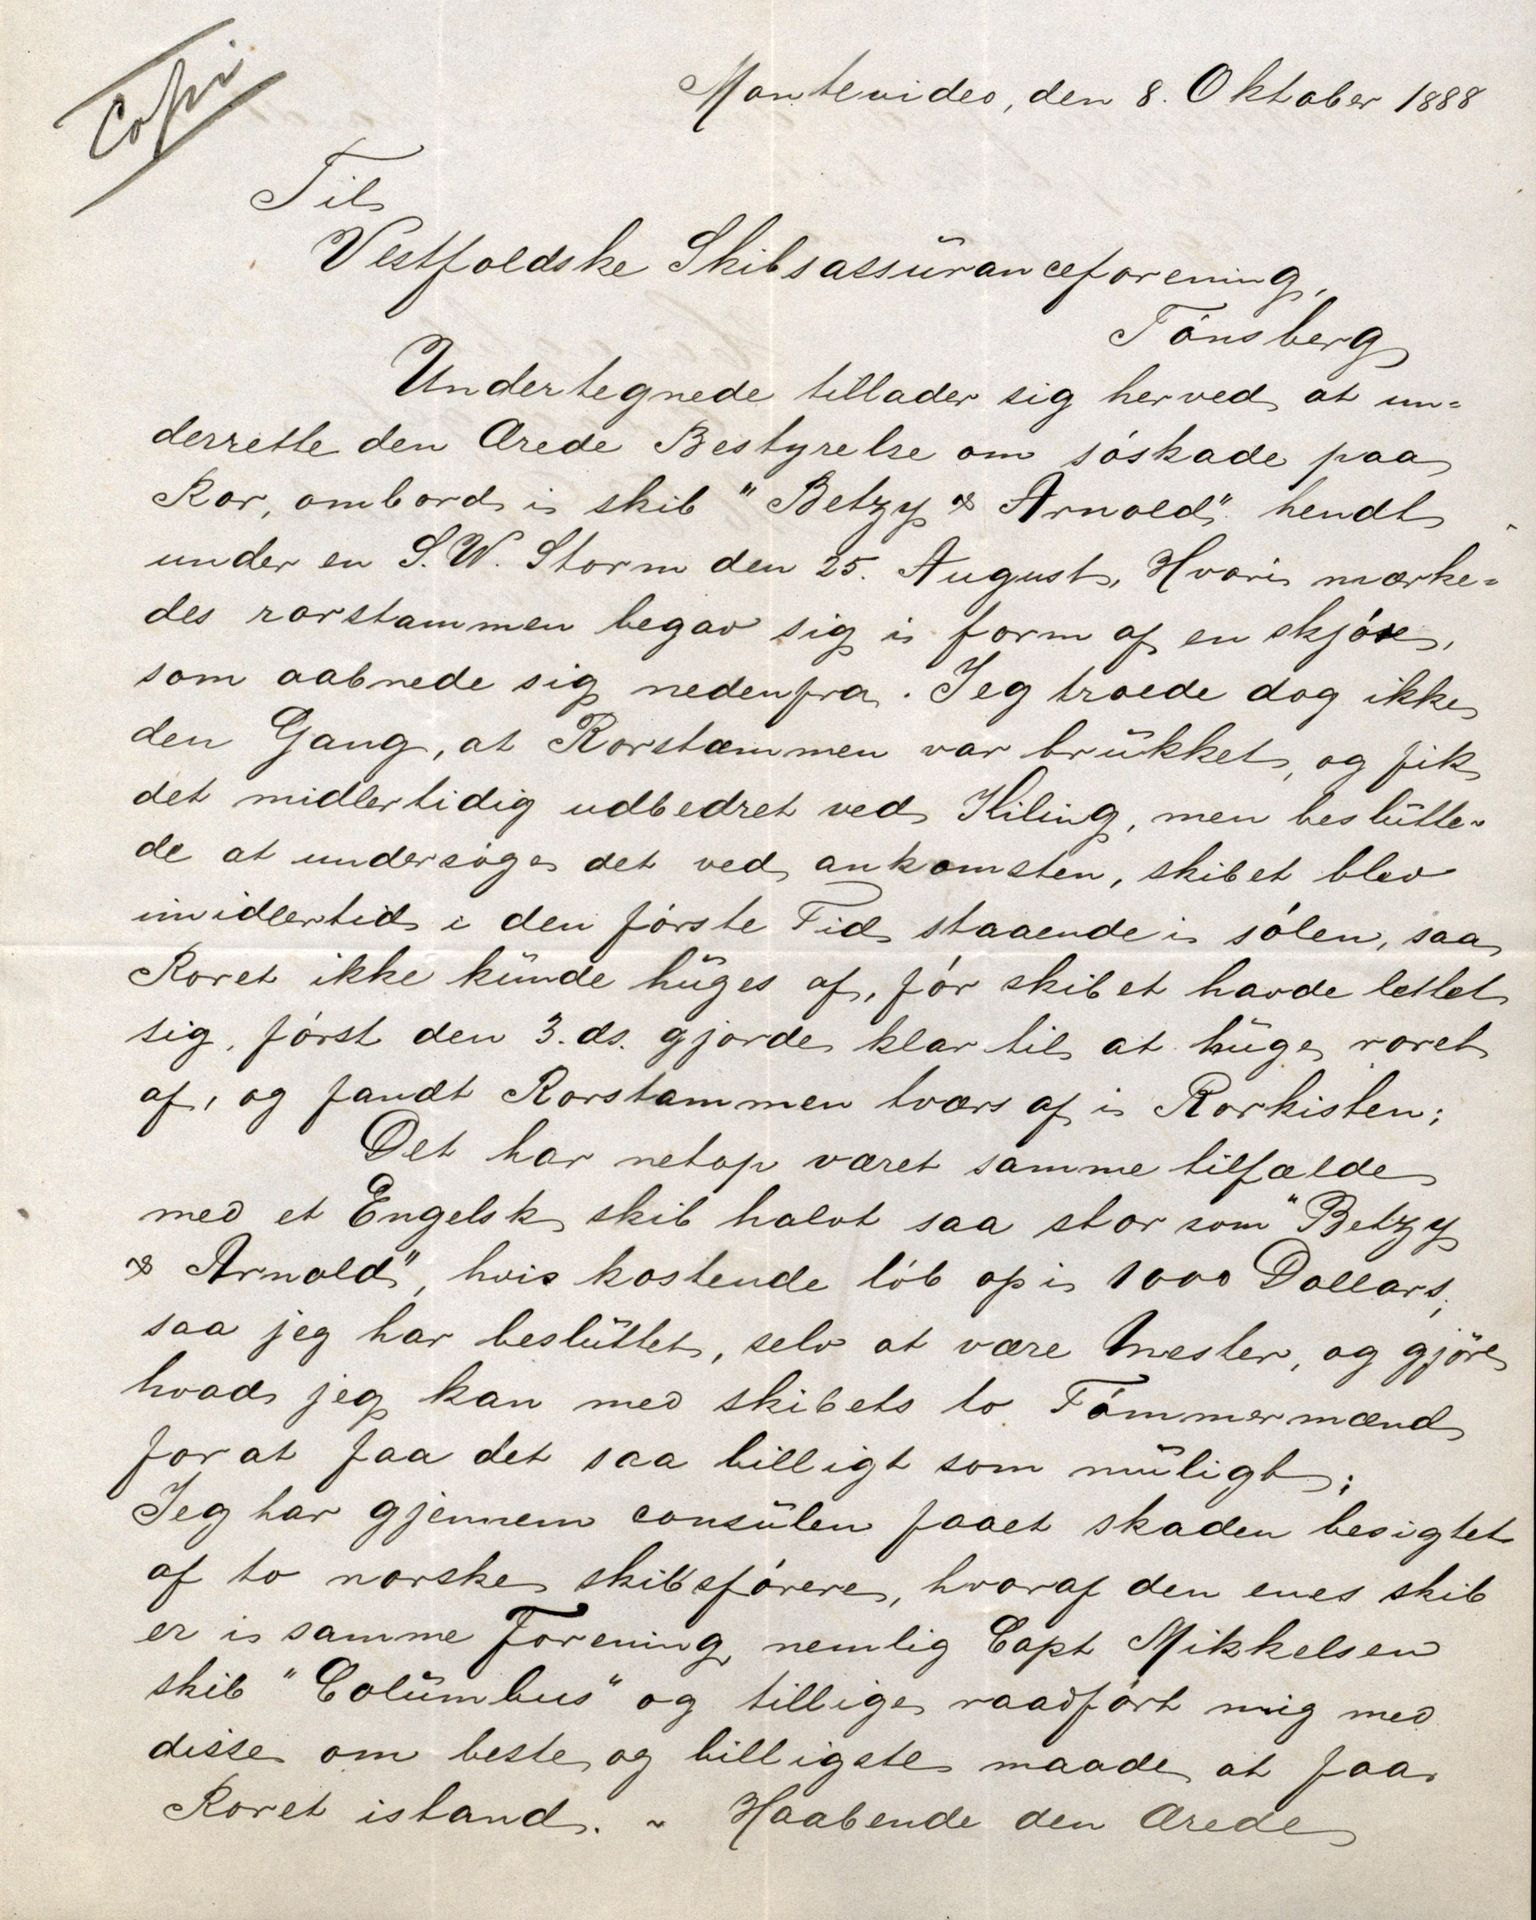 Copi
Montevideo, den 8. Oktober 1888
Til
Vestfoldske Skibsassüranceforening,
Tónsberg
Undertegnede tillader sig herved at un=
derrette den Ærede Bestyrelse om sóskade paa
Ror, ombord i skib "Betzy & Arnold" hendt
under en S.W. Storm den 25. August, Hvori mærke=
des rorstammen begav sig i form af en skjóre,
som aabnede sig nedenfra. Jeg troede dog ikke
den Gang, at Rorstammen var brükket, og fik
det midlertidig udbedret ved Kiling, men beslütte=
de at undersöge det ved ankomsten, skibet blev
imidlertid i den fórste Tid staaende i sólen, saa
Roret ikke künde hüges af, fór skibet havde lettet
sig, fórst den 3. ds. gjorde klar til at hüge roret
af, og fandt Rorstammen tværs af i Rorkisten;
Det har netop været samme tilfælde
med et Engelsk skib halvt saa stor som "Betzy
& Arnold", hvis kostende lób op i 1000 Dollars;
saa jeg har beslüttet, selv at være Mester, og gjöre
hvad jeg kan med skibets to Tómmermænd
for at faa det saa billigt som müligt;
Jeg har gjennem consülen faaet skaden besigtet
af to norske skibsfórere, hvoraf den enes skib
er i samme Forening, nemlig Capt Mikkelsen
skib "Colümbus" og tillige raadfórt mig med
disse om beste og billigste maade at faa
Roret istand. ~ Haabende den Ærede